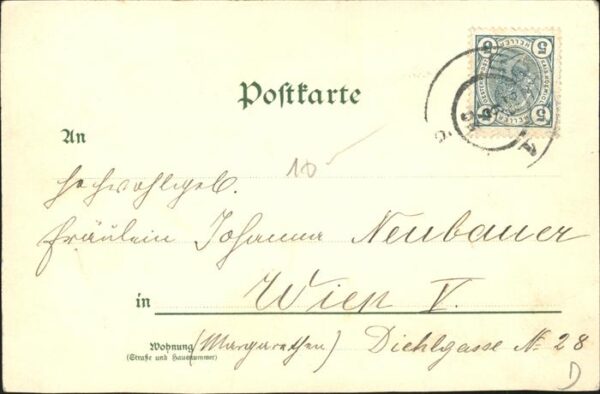 5 HELLER 5
Postkarte
An
10
Hochwohlgeb.
Fräulein Johanna Neubauer
in Wien V.
Wohnung (Margarethen) Diehlgasse № 28
(Straße und Hausnummer)
D